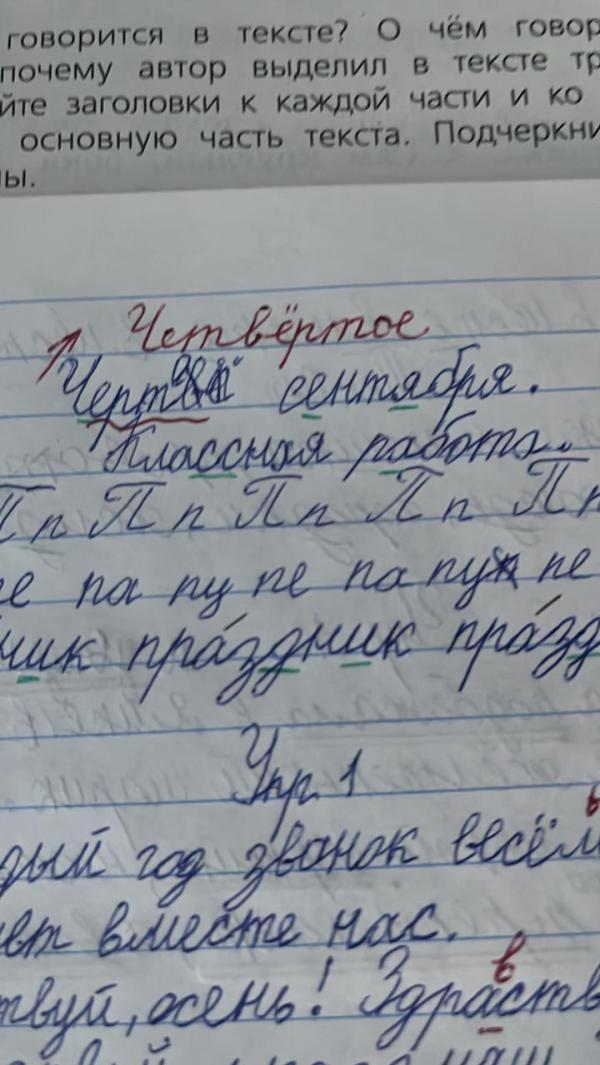 говорится в тексте? О чём говор
почему автор выделил в тексте тр
йте заголовки к каждой части и ко
основную часть текста. Подчеркни
ны.
Четвёртое
сентября.
Классная работа.
Пп Пп Пп Пп Пп
па пу пе па пу пе
ник праздник празд
Упр. 1
дый год звонок весём
вместе нас.
твуй, осень! Здраств
в